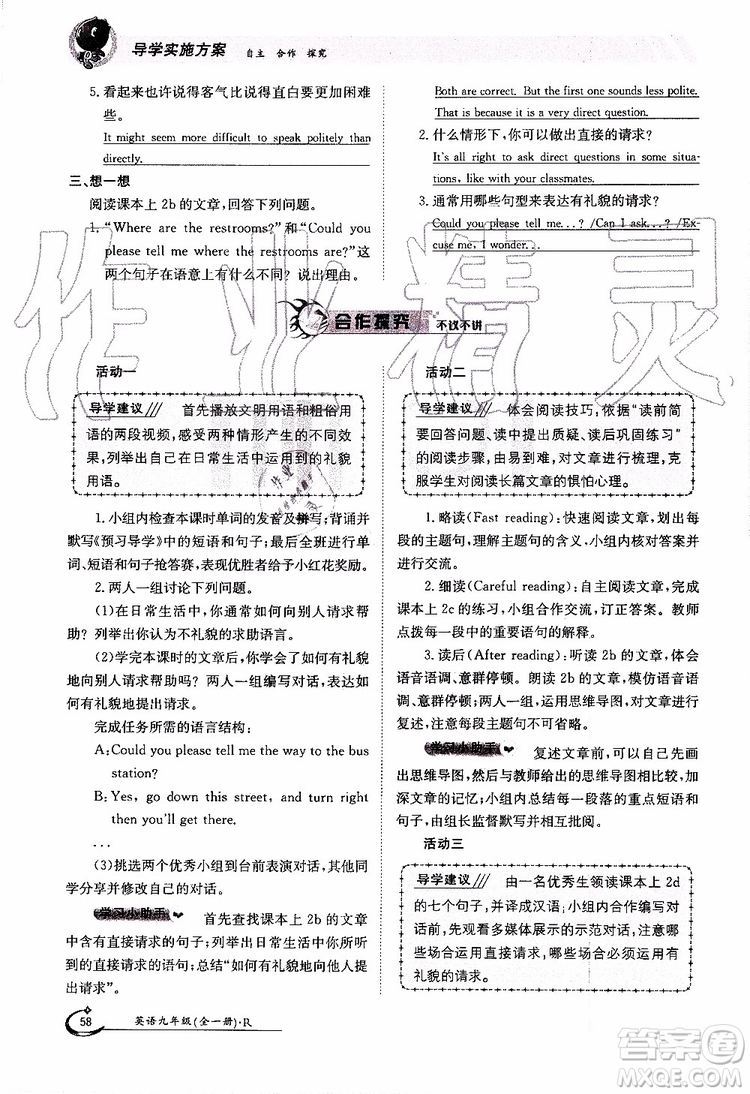 导学实施方案 自主 合作 探究
5. 看起来也许说得客气比说得直白要更加困难
些。
It might seem more difficult to speak politely than
directly.
三、想一想
阅读课本上 2b 的文章,回答下列问题。
1. “Where are the restrooms?”和“Could you
please tell me where the restrooms are?”这
两个句子在语意上有什么不同? 说出理由。
Both are correct. But the first one sounds less polite.
That is because it is a very direct question.
2. 什么情形下,你可以做出直接的请求?
It's all right to ask direct questions in some situa-
tions, like with your classmates.
3. 通常用哪些句型来表达有礼貌的请求?
Could you please tell me...? /Can I ask...? /Ex-
cuse me, I wonder...
合作探究 不议不讲
活动一
导学建议 首先播放文明用语和粗俗用
语的两段视频,感受两种情形产生的不同效
果,列举出自己在日常生活中运用到的礼貌
用语。
1. 小组内检查本课时单词的发音及拼写;背诵并
默写《预习导学》中的短语和句子;最后全班进行单
词、短语和句子抢答赛,表现优胜者给予小红花奖励。
2. 两人一组讨论下列问题。
(1)在日常生活中,你是如何向别人请求帮
助? 列举出你认为有礼貌的求助语言。
(2)学完本课时的文章后,你学会了如何有礼貌
地向别人请求帮助吗? 两人一组编写对话,体现如
何有礼貌地提出请求。
完成任务所需的语言结构:
A: Could you please tell me the way to the bus
station?
B: Yes, go down this street, and turn right
then you'll get there.
...
(3)挑选两个优秀小组到台前表演对话,其他同
学分享并修改自己的对话。
学习小助手 首先查找课本上 2b 的文章
中含有直接请求的句子;列举出在日常生活中你所听
到的直接请求的语句;总结“如何有礼貌地向他人提出
请求”。
活动二
导学建议 体会阅读技巧,依据“读前简
要回答问题、读中提出质疑、读后巩固练习”
的阅读步骤,由易到难,对文章进行梳理,克
服学生对阅读长篇文章的惧怕心理。
1. 略读(Fast reading):快速阅读文章,划出每
段的主题句,理解每个主题句的含义,小组内核对答
案并进行交流。
2. 细读(Careful reading):自主阅读文章,完成
课本上 2c 的练习,小组合作交流,订正答案。教师
点拨每一段中的重要语句的解释。
3. 读后(After reading):听读 2b 的文章,体会
语音语调、意群停顿。朗读 2b 的文章,模仿语音语
调、意群停顿;两人一组,运用思维导图,对文章进行
复述,注意每段主题句不可省略。
学习小助手 复述文章前,可以自己先画
出思维导图,然后与教师给出的思维导图相比较,加
深文章的记忆;小组内总结每一段落的重点短语和
句子,由组长监督默写并相互批阅。
活动三
导学建议 由一名优秀生领读课本上 2d
的七个句子,并译成汉语;小组内合作编写对
话;观看多媒体展示的示范对话,注意区分哪
些场合运用直接请求,哪些场合必须运用有
礼貌的请求。
58 英语九年级(全一册)·R
作业精灵
答案圈
MXQE.COM